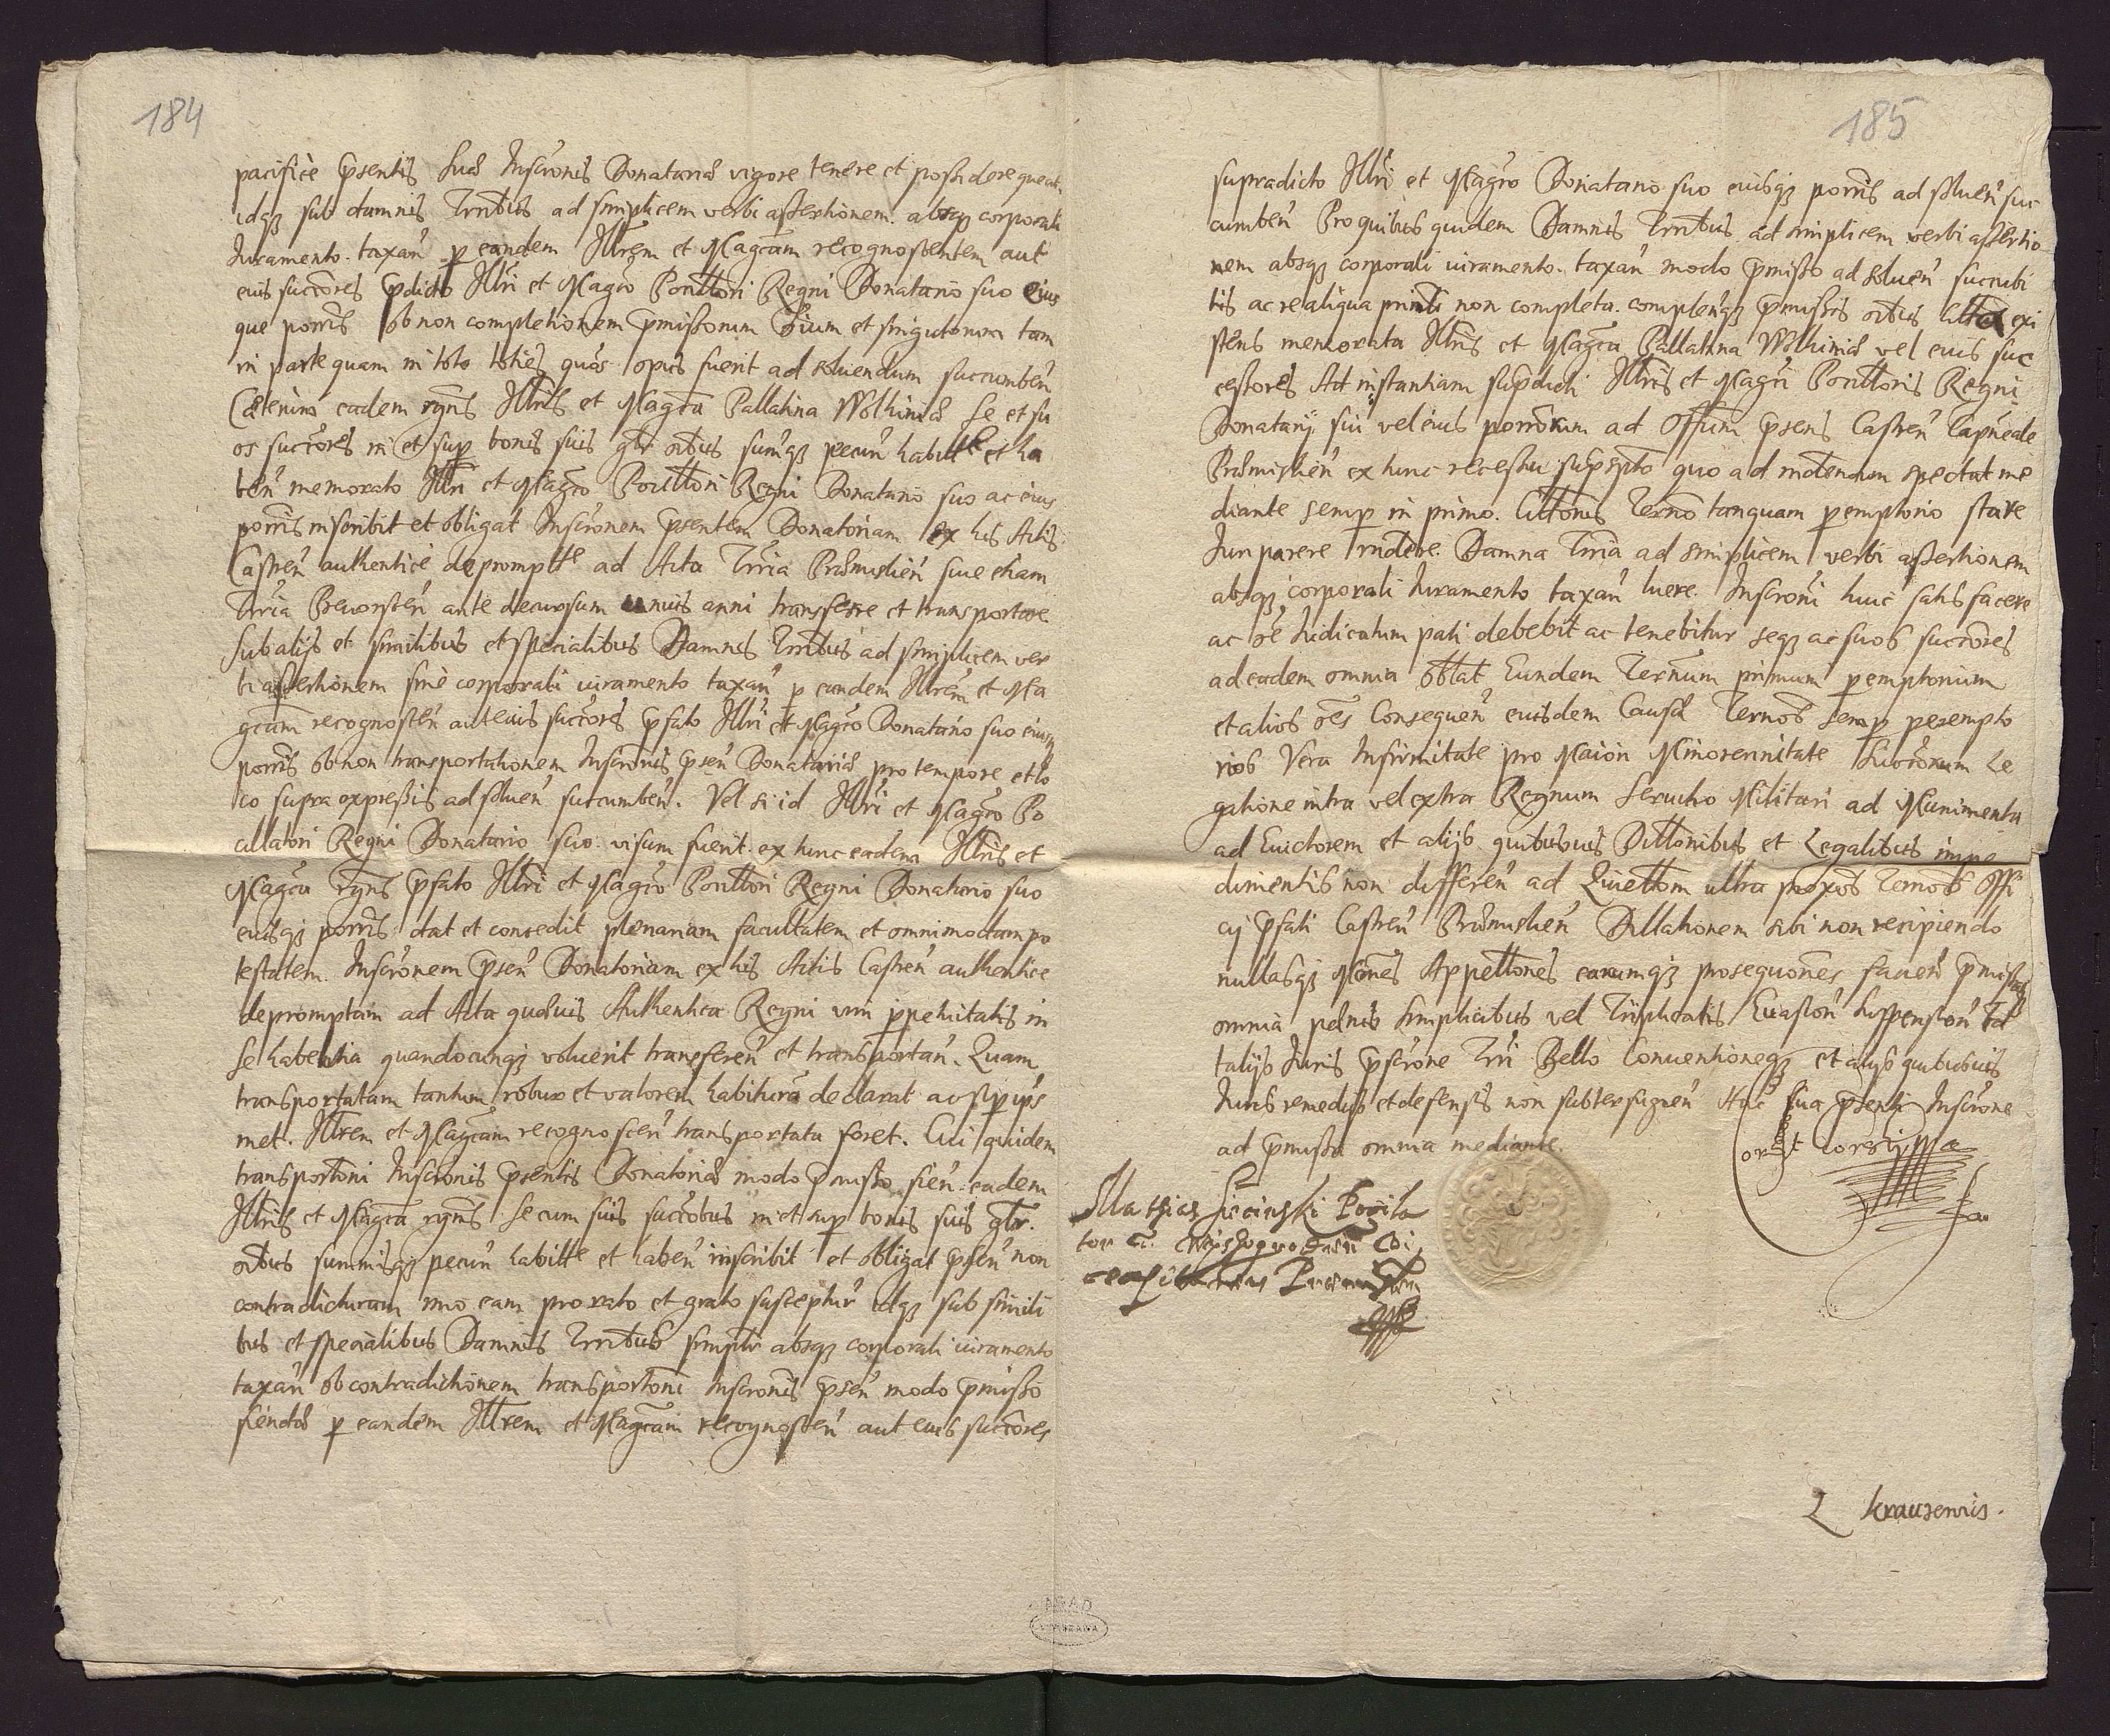 184
pacifice p̄sentis suæ Inscr̄onis Donatariæ vigore tenere et possidere queat.
idqꝫ sub damnis Trr̄ibus ad simplicem verbi assertionem absqꝫ corporali
Iuramento taxan̄ p eandem Illr̄em et Magc̄am recognoscentem aut
eius succ̄ores p̄dicto Illr̄i et Magc̄o Pocill̄ori Regni Donatario suo eius
que porr̄is ob non completionem p̄missorum om̄ium et singulorum tam
in parte quam in toto toties quo͞s opus fuerit ad soluendum succumben̄
Cæterum eadem rgn̄s Illr̄is et Magc̄a Pallatina Wolhiniæ se et su
os succ̄ores in et sup bonis suis gn̄lr om̄ibus sum̄qꝫ pecun̄ habit̄ et ha
ben̄ memorato Illr̄i et Magc̄o Pocill̄ori Regni Donatario suo ac eius
porr̄is inscribit et obligat Inscr̄onem p̄sentem Donatoriam ex his Actis
Castren̄ authenticè deprompt̄ ad Acta Trr̄ia Præmislien̄ siue etiam
Trr̄ia Prevorscen̄ ante decursum unius anni transferre et transportare
sub alijs et similibus et specialibus Damnis Trr̄ibus ad simplicem ver
bi assertionem sinè corporali iuramento taxan̄ p eandem Illr̄em et Ma
gc̄am recognoscen̄ aut eius succ̄ores p̄fato Illr̄i et Magc̄o Donatario suo eiusqꝫ
porr̄is ob non transportationem Inscr̄onis p̄sen̄ Donatariæ pro tempore et lo
co supra expressis ad soluen̄ succumben̄. Vel si id Illr̄i et Magc̄o Po
cillatori Regni Donatario suo visum fuerit ex tunc eadem Illr̄is et
Magc̄a rgn̄s p̄fato Illr̄i et Magc̄o Pocill̄ori Regni Donatario suo
eiusqꝫ porr̄is dat et concedit plenariam facultatem et omnimodam po
testatem. Inscr̄onem p̄sen̄ Donatoriam ex his Actis Castren̄ authentice
depromptam ad Acta quæuis Authentica Regni vim ppetuitatis in
se habentia quandocunqꝫ voluerit transferen̄ et transportan̄. Quam
transportatam tantum robur et valorem habituram declarat ac si p ip̄s
met. Illr̄em et Magc̄am recognoscen̄ transportata foret. Cui quidem
transport̄oni Inscr̄onis p̄sentis Donatoriæ modo p̄misso fien̄ eadem
Illr̄is et Magc̄a rgn̄s se cum suis succ̄oribus in et sup bonis suis gn̄lr.
om̄ibus summisqꝫ pecun̄ habit̄ et haben̄ inscribit et obligat p̄sen̄ non
contradicturam imo eam pro rato et grato susceptur̄ idqꝫ sub simili
bus et specialibus Damnis Trr̄ibus simplr̄ absqꝫ corporali iuramento
taxan̄ ob contradictionem transport̄oni Inscr̄onis p̄sen̄ modo p̄misso
fiendæ p eandem Illr̄em et Magc̄am recognoscen̄ aut eius succ̄ores
185
supradicto Illr̄i et Magc̄o Donatario suo eiusqꝫ porr̄is ad soluen̄ suc
cumben̄ Pro quibus quidem Damnis Trr̄ibus ad simplicem verbi assertio
nem absqꝫ corporali iuramento taxan̄ modo p̄misso ad soluen̄ succubi
tis ac re aliqua prmi̅ti non completa. complen̄qꝫ p̄missis om̄ibus citta exi
stens memorata Illr̄is et Magc̄a Pallatina Wolhiniæ vel eius suc
cessores Ad instantiam sup̄dicti Illr̄is et Magc̄i Pocill̄oris Regni
Donatarij sui vel eius porr̄orum ad Offium p̄sens Castren̄ Capn̄eale
Præmislien̄ ex tunc recessu sup̄scpto quo ad indendum spectat me
diante semp in primo. Citt̄onis Termō tanquam pemptorio stare
Iuri parere rn̄dere Damna Trr̄ia ad simplicem verbi assertionem
absqꝫ corporali Iuramento taxan̄ luere. Inscr̄oni huic satisfacere
ac re Iudicatum pati debebit ac tenebitur seqꝫ ac suos succ̄ores
ad eadem omnia obl̄at Eundem Termūm primum pemptorium
et alios om̄es Consequen̄ eiusdem Causæ Termōs semp perempto
rios Vera Infirmitate pro Maiori Minorennitate Succ̄orum Le
gatione intra vel extra Regnum Seruitio Militari ad Munimenta
ad Euictorem et alijs quibusuis Dillōnibus et Legalibus impe
dimentis non differen̄ ad Quiett̄om ultra prox̄os Termōs Offi
cij p̄fati Castren̄ Præmislien̄ Dillationem sibi non recipiendo
nullasqꝫ Mōnes Appell̄ones earumqꝫ prosequōnes facien̄ p̄missaqꝫ
omnia pœnis simplicibus vel Triplicatis Euasion̄ suspension̄ Ta
talijs Iuris p̄scr̄one Trr̄i Bello Conuentioneqꝫ et alijs quibusuis
Iuris remedijs et defensis non subterfugien̄ Hac sua p̄senti Inscr̄one
ad p̄missa omnia mediante.
Correxit
Mathias Pocilla
tor
L Krausowicz.
AGAD
WARSZAWA